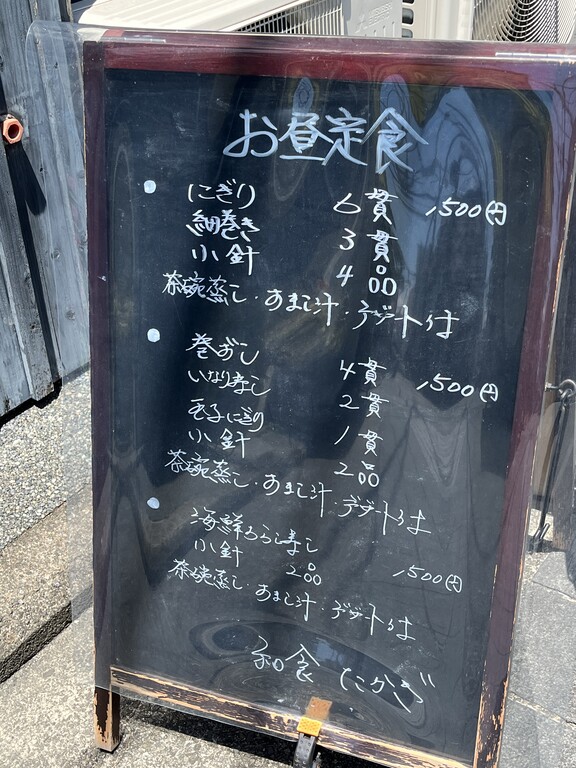 お昼定食
にぎり 6貫 1,500円
細巻き 3貫
小針 4品
茶碗蒸し・あまし汁・デザート付
巻ずし 4貫 1,500円
いなり寿し 2貫
玉子にぎり 1貫
小針 2品
茶碗蒸し・あまし汁・デザート付
海鮮ちらし寿し 1,500円
小針 2品
茶碗蒸し・あまし汁・デザート付
和食 たかぎ